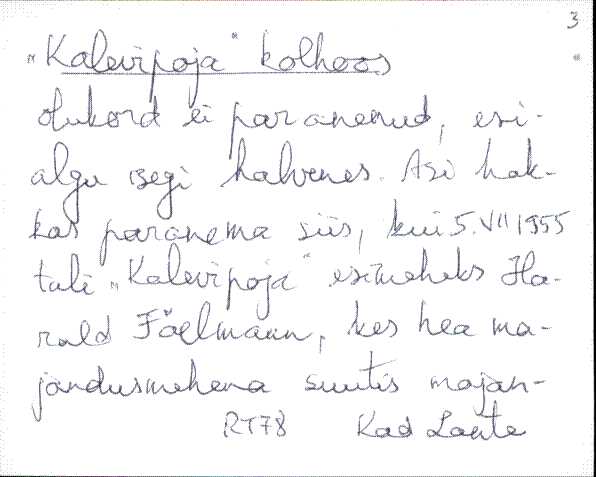 3
"Kalevipoja" kolhoos
olukord ei paranenud, esi-
algu isegi halvenes. Asi hak-
kas paranema siis, kui 5. VII 1955
tuli "Kalevipoja" esimeheks Ha-
rald Fäelmann, kes hea ma-
jandusmehena suutis majan-
RT78 Kad Laute